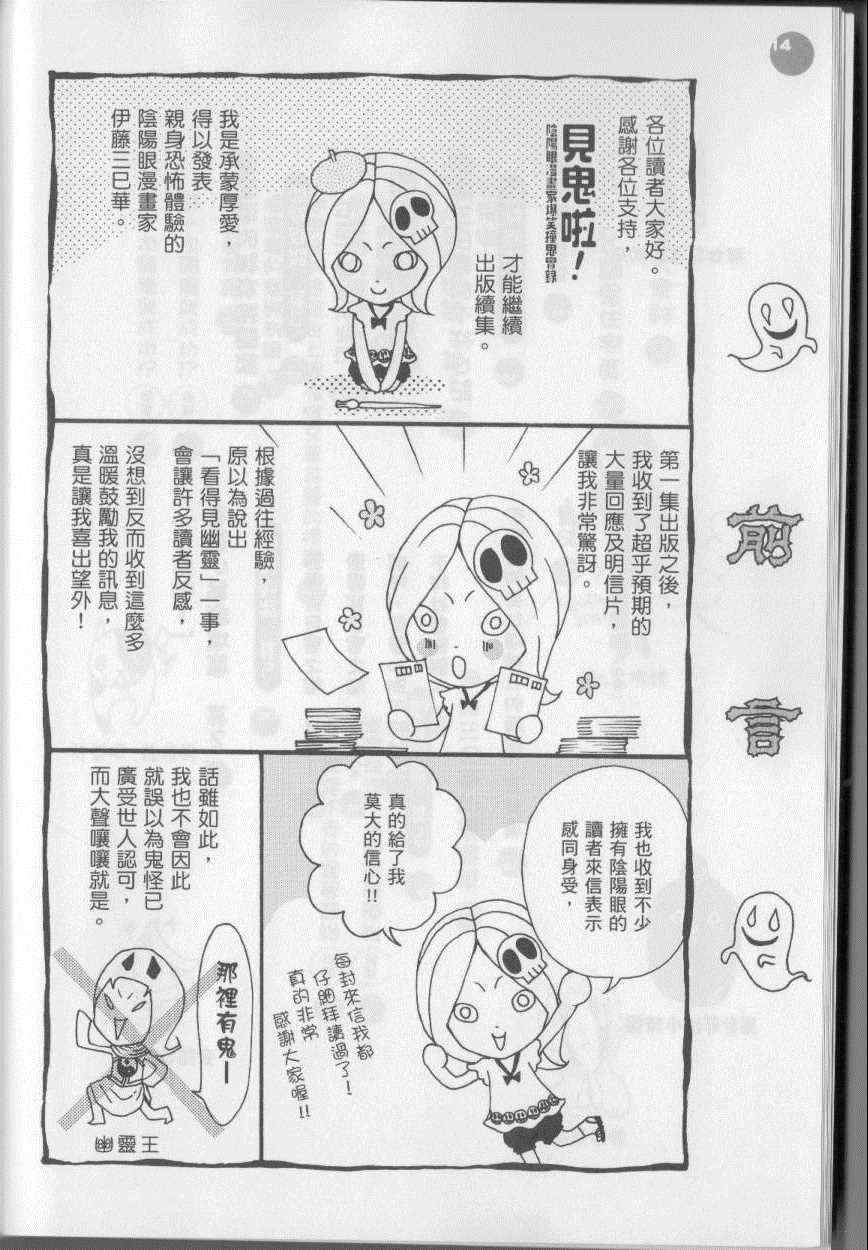 14
前言
各位讀者大家好。
感謝各位支持，
見鬼啦！
陰陽眼漫畫家爆笑撞鬼實錄
才能繼續
出版續集。
我是承蒙厚愛，
得以發表
親身恐怖體驗的
陰陽眼漫畫家
伊藤三巳華。
第一集出版之後，
我收到了超乎預期的
大量回應及明信片，
讓我非常驚訝。
根據過往經驗，
原以為說出
「看得見幽靈」一事，
會讓許多讀者反感，
沒想到反而收到這麼多
溫暖鼓勵我的訊息，
真是讓我喜出望外！
我也收到不少
擁有陰陽眼的
讀者來信表示
感同身受，
真的給了我
莫大的信心!!
每封來信我都
仔細拜讀過了！
真的非常
感謝大家喔!!
話雖如此，
我也不會因此
就誤以為鬼怪已
廣受世人認可，
而大聲嚷嚷就是。
那裡有鬼—
幽靈王